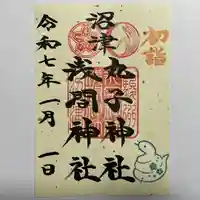 初詣
沼津
丸子神社
浅間神社
令和七年一月一日